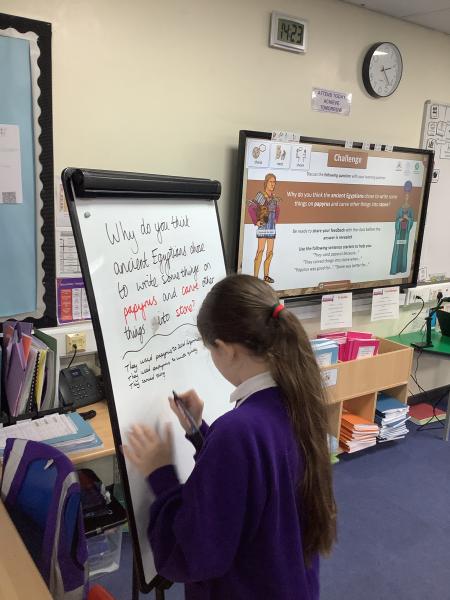 14:23
ATTEND TODAY
ACHIEVE
TOMORROW
Challenge
Discuss the following question with your learning partner.
Why do you think the ancient Egyptians chose to write some
things on papyrus and carve other things into stone?
Be ready to share your feedback with the class before the
answer is revealed.
Use the following sentence starters to help you:
"They used papyrus because…"
"They carved things into stone when…"
"Papyrus was good for… "Stone was better for…"
Why do you think
ancient Egyptians chose
to write some things on
papyrus and carve other
things into stone?
They used papyrus to
They used papyrus to
They carved thing